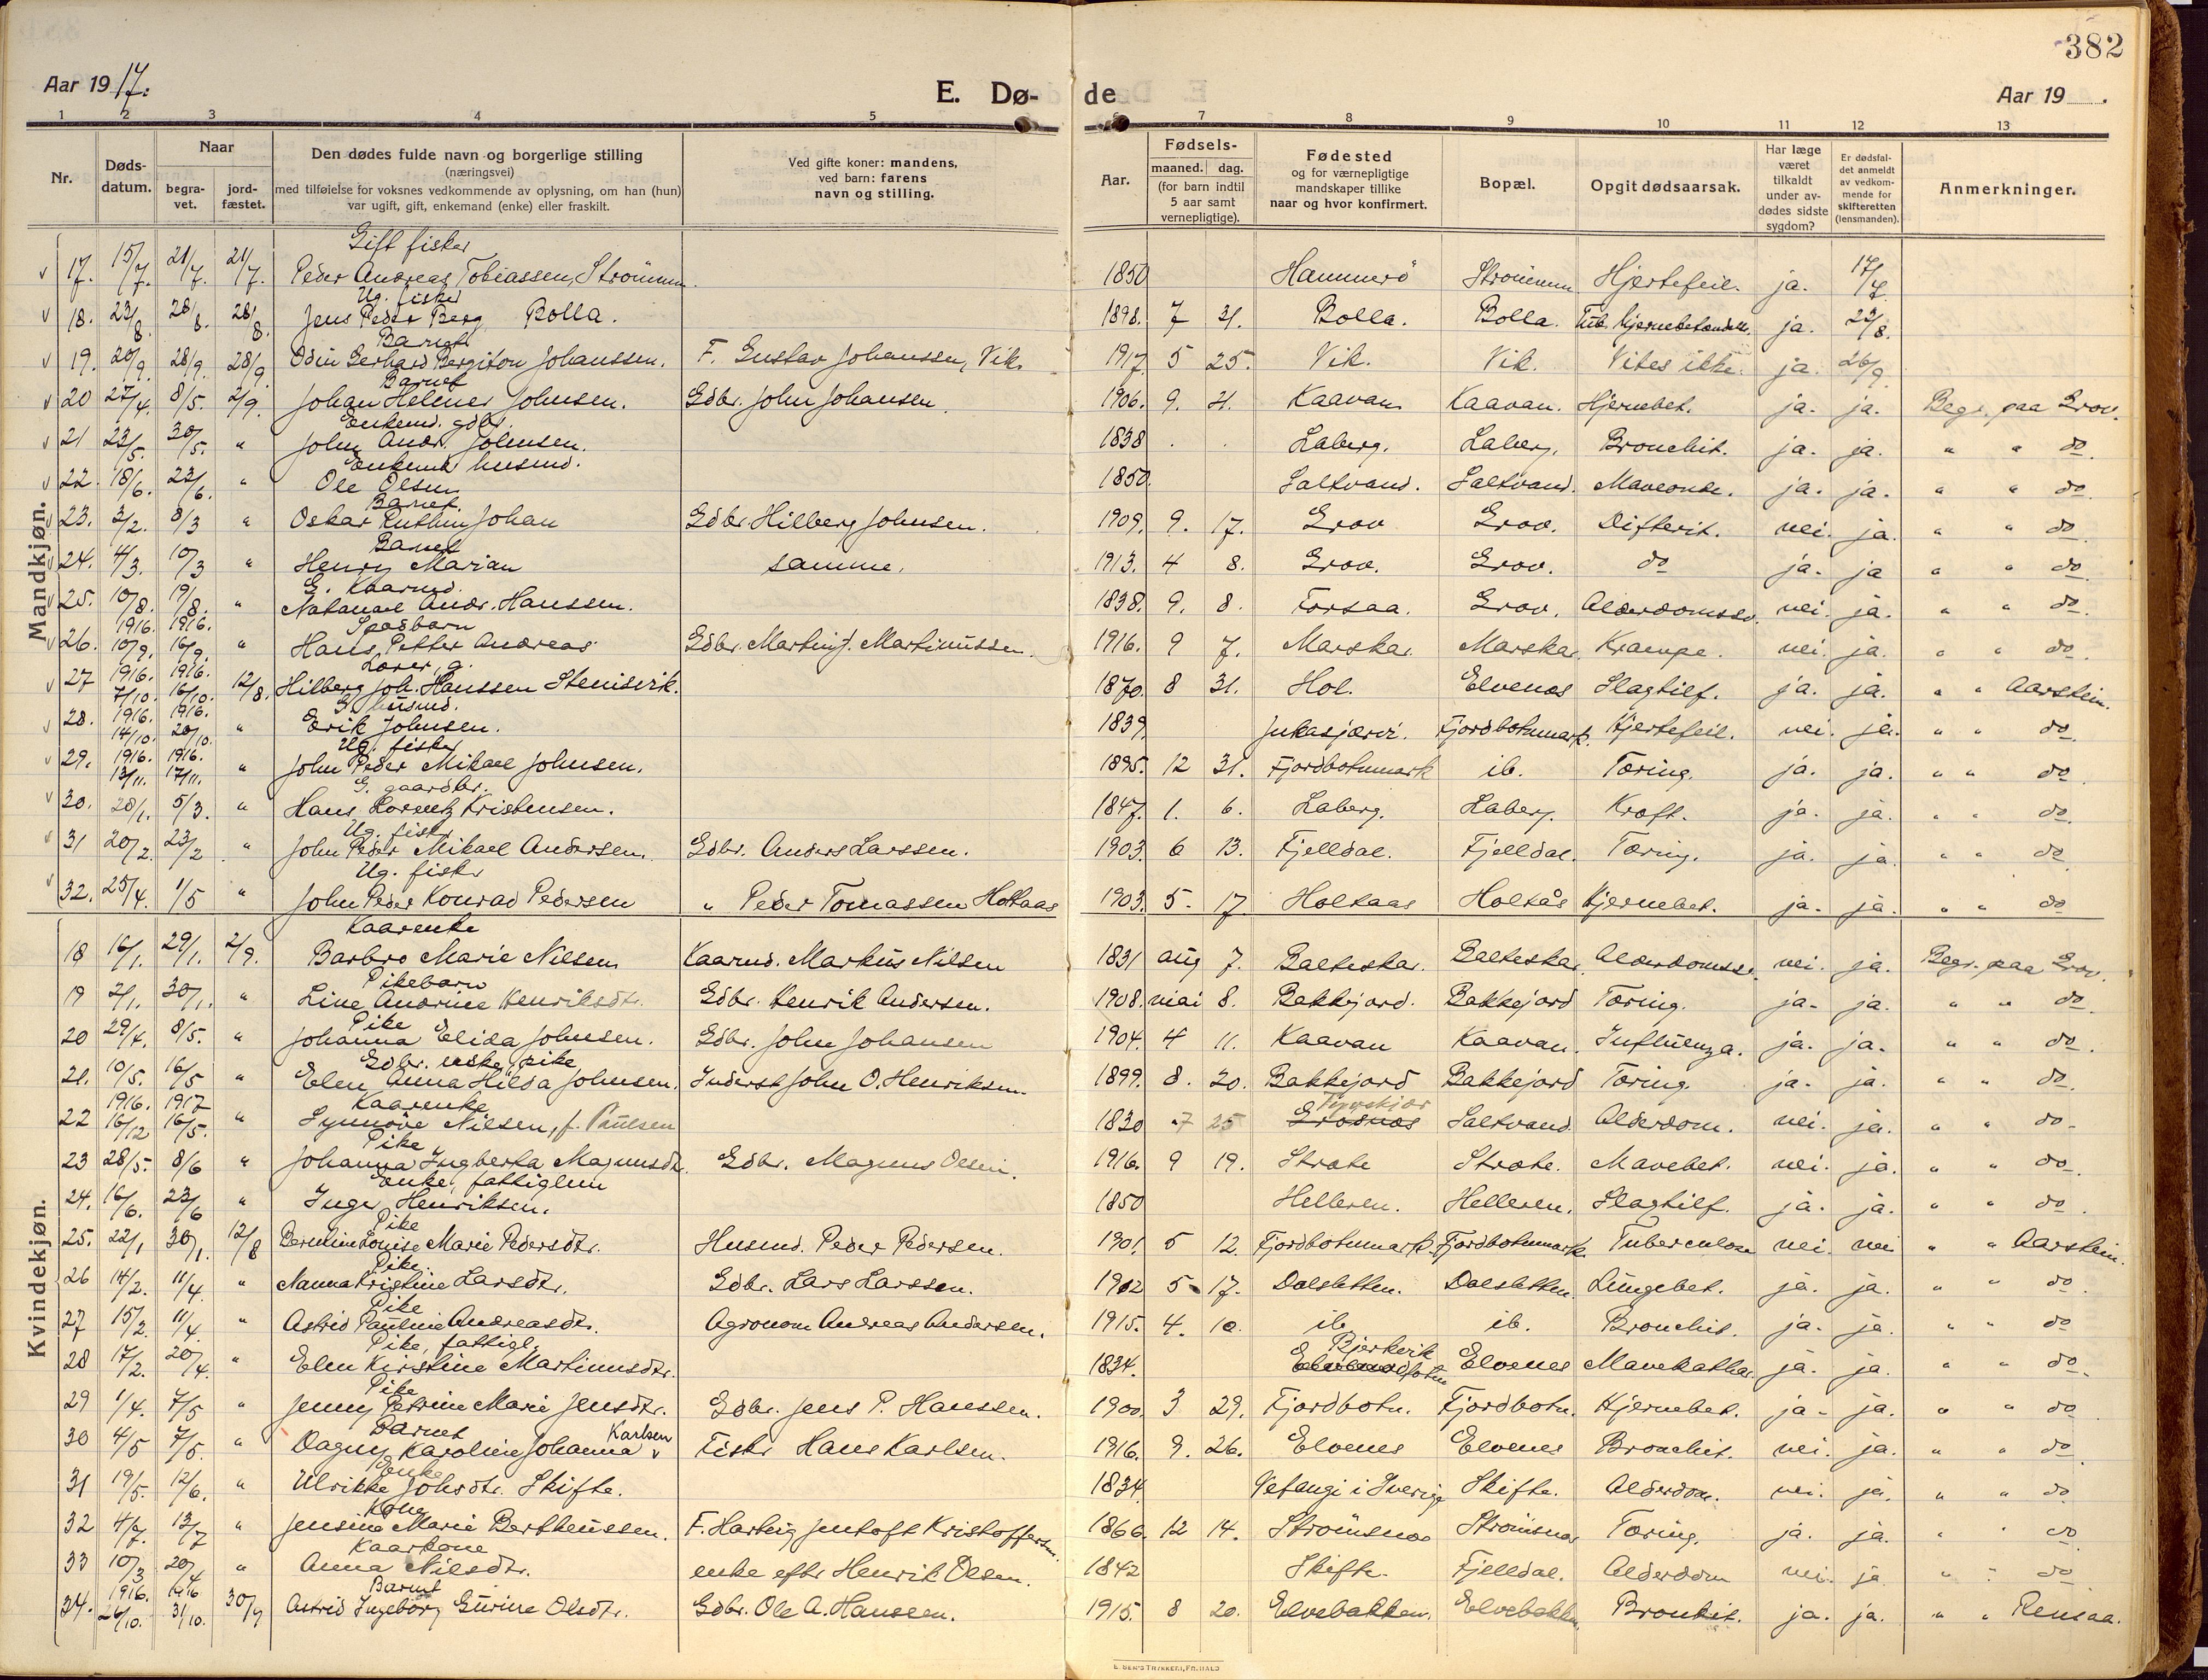 382
Aar 1917.
E. Dø-
de
Aar 19 .
1 2 3 4 5 6 7 8 9 10 11 12 13
Nr.
Døds-
datum.
Naar
begra-
vet.
jord-
fæstet.
Den dødes fulde navn og borgerlige stilling
(næringsvei)
med tilføielse for voksnes vedkommende av oplysning, om han (hun)
var ugift, gift, enkemand (enke) eller fraskilt.
Ved gifte koner: mandens,
ved barn: farens
navn og stilling.
Aar.
Fødsels-
maaned. dag.
(for barn indtil
5 aar samt
vernepligtige).
Fødested
og for værnepligtige
mandskaper tillike
naar og hvor konfirmert.
Bopæl.
Opgit dødsaarsak.
Har læge
været
tilkaldt
under av-
dødes sidste
sygdom?
Er dødsfal-
det anmeldt
av vedkom-
mende for
skifteretten
(lensmanden).
Anmerkninger.
Mandkjøn.
Gift fisker
17. 15/7. 21/7. 21/7. Peder Andreas Tobiassen, Strømmen. 1850 Hammerö Strömmen Hjertefeil. ja. 17/7.
Ug. fisker
18. 23/8. 28/8. 28/8. Jens Peder Berg Bolla. 1898. 7 31. Bolla. Bolla. Tub. hjernebetændelse ja. 23/8.
Barnet
19. 20/9. 28/9. 28/9. Odin Gerhard Bergiton Johanssen. F. Gustav Johanssen, Vik. 1917. 5 25. Vik. Vik. Vites ikke. ja. 26/9.
Barnet
20 27/4. 8/5. 2/9. Johan Helmer Johnsen. Gdbr. John Johansen. 1906. 9. 21. Kaavan. Kaavan. Hjernebet. ja. ja. Begr. paa Grov.
Enkemd. gdbr.
21 23/5. 30/5. " John Andr. Johnsen. 1838 Laberg. Laberg. Bronchit. ja. ja. " " do.
Enkemd. husmd.
22. 18/6. 23/6. " Ole Olsen 1850. Saltvand. Saltvand. Maveonde. ja. ja. " " do.
Barnet.
23. 3/2. 8/3 " Oskar Ruthin Johan Gdbr Hilberg Johnsen. 1909. 9. 17. Grov Grov. Difterit. nei. ja. " " do.
Barnet
24. 4/3. 10/3 " Henry Marian samme. 1913. 4 8. Grov. Grov. do ja. ja " " do.
G. Kaarmd.
25. 10/8. 19/8. " Natanael Andr. Hanssen. 1838. 9. 8. Forsaa. Grov. Alderdomssv. nei. ja. " " do.
Spædbarn
26. 1916. 10/9. 1916. 16/9. " Hans Petter Andreas Gdbr. Martin J. Martinussen. 1916. 9 7. Marskar. Marskar. Krampe. nei. ja. " " do.
Lærer, g.
27 1916. 7/10. 1916. 16/10. 12/8. Hilberg Joh. Hanssen Stenisvik. 1870. 8 31. Hol. Elvenes Slagtilf. ja. ja. " " Aarstein.
G. husmd.
28. 1916. 14/10. 1916. 20/10. " Erik Johnsen. 1839. Jukasjærvi. Fjordbotnmark. Hjertefeil. nei. ja. " " do
Ug. fisker
29. 1916. 13/11. 1916. 17/11. " John Peder Mikael Johnsen. 1895. 12 31. Fjordbotnmark ib. Tæring. ja. ja. " " do.
G. gaardbr.
30. 28/1. 5/3. " Hans Lorentz Kristensen. 1847. 1. 6. Laberg. Laberg. Kræft. ja. ja. " " do.
Ug. fisker
31 20/2. 23/2. " John Peder Mikael Andersen. Gdbr. Anders Larssen. 1903. 6 13. Fjelldal. Fjelldal. Tæring. ja. ja. " " do
Ug. fisker
32. 25/4. 1/5 " John Peder Konrad Pedersen " Peder Tomassen Holtaas 1903. 5. 17. Holtaas Holtås Hjernebet. ja. ja. " " do
Kvindekjøn.
Kaarenke
18 16/1. 29/1. 2/9. Barbro Marie Nilsen Kaarmd. Markus Nilsen 1831 aug 7. Balteskar. Balteskar. Alderdomssv. nei. ja. Begr. paa Grov.
Pikebarn
19 2/1. 30/1. " Line Andrine Henriksdtr. Gdbr. Henrik Andersen. 1908. mai 8. Bakkejord. Bakkejord Tæring. ja. ja. " " do.
Pike
20 29/4. 8/5. " Johanna Elida Johnsen. Gdbr. John Johansen 1904. 4 11. Kaavan Kaavan. Influenza. ja. ja. " " do.
Gdbr. enke, pike
21. 10/5. 16/5 " Elen Anna Hilda Johnsen. Inderst John O. Henriksen. 1899. 8. 20. Bakkejord Bakkejord Tæring. ja. ja. " " do.
Kaarenke
22 1916. 16/12 1917 16/5. " Synnöve Nilsen, f. Paulsen 1830 7 25 Grosnes Saltvand. Alderdom. nei. ja. " " do.
Pike
23 28/5. 8/6 " Johanna Ingberta Magnusdtr. Gdbr. Magnus Olsen. 1916. 9 19. Strate Strate. Mavebet. nei. ja. " " do.
Enke, fattiglem
24. 16/6. 23/6 " Inger Henriksen. 1850 Helleren. Helleren. Slagtilf. ja. ja. " " do.
Pike
25. 22/1 30/1. 12/8 Bernline Louise Marie Pedersdtr. Husmd. Peder Pedersen. 1901. 5 12. Fjordbotnmark. Fjordbotnmark. Tuberculose nei. nei " " Aarstein.
Pike
26 14/2. 11/4 " Nanna Kristine Larsdtr. Gdbr. Lars Larssen. 1902 5. 17. Dalsletten. Dalsletten. Lungebet. ja. ja. " " do.
Pike
27 15/2. 11/4. " Astrid Pauline Andreasdtr. Agronom Andreas Andersen. 1915. 4. 10. ib. ib. Bronchit. ja. ja. " " do
Pike, fattigl.
28 17/2. 20/4. " Elen Kirstine Martinusdtr. 1834. Bjerkvik Elvenes Mavekathar. ja. ja. " " do.
Pike
29 1/4. 7/5 " Jenny Petrine Marie Jensdtr. Gdbr. Jens P. Hanssen. 1900. 3 29. Fjordbotn. Fjordbotn. Hjernebet. ja. ja. " " do.
Barnet
30 4/5 7/5. " Dagny Karoline Johanna Karlsen Fisker Hans Karlsen. 1916. 9. 26. Elvenes Elvenes Bronchit. nei. ja. " " do
Enke
31 19/5. 12/6. " Ulrikke Johsdtr. Skifte. 1834. Vefangi i Sverige Skifte. Alderdom. nei. ja. " " do
Kone
32 4/7. 13/7 " Jensine Marie Bertheussen. F. Hartvig Jentoft Kristoffersen. 1866. 12 14. Strömsnes Strömsnes Tæring. ja. ja. " " do
Kaarkone
33 10/3 20/4 " Anna Nilsdtr. enke efter Henrik Olsen. 1842 Skifte. Fjelldal. Alderdom nei. ja " " do
Barnet
34. 1916. 26/10. 1916 31/10. 30/9 Astrid Ingeborg Gurine Olsdtr. Gdbr. Ole A. Hanssen. 1915. 8 20. Elvebakken. Elvebakken. Bronkit. ja. ja. " " Rensaa.